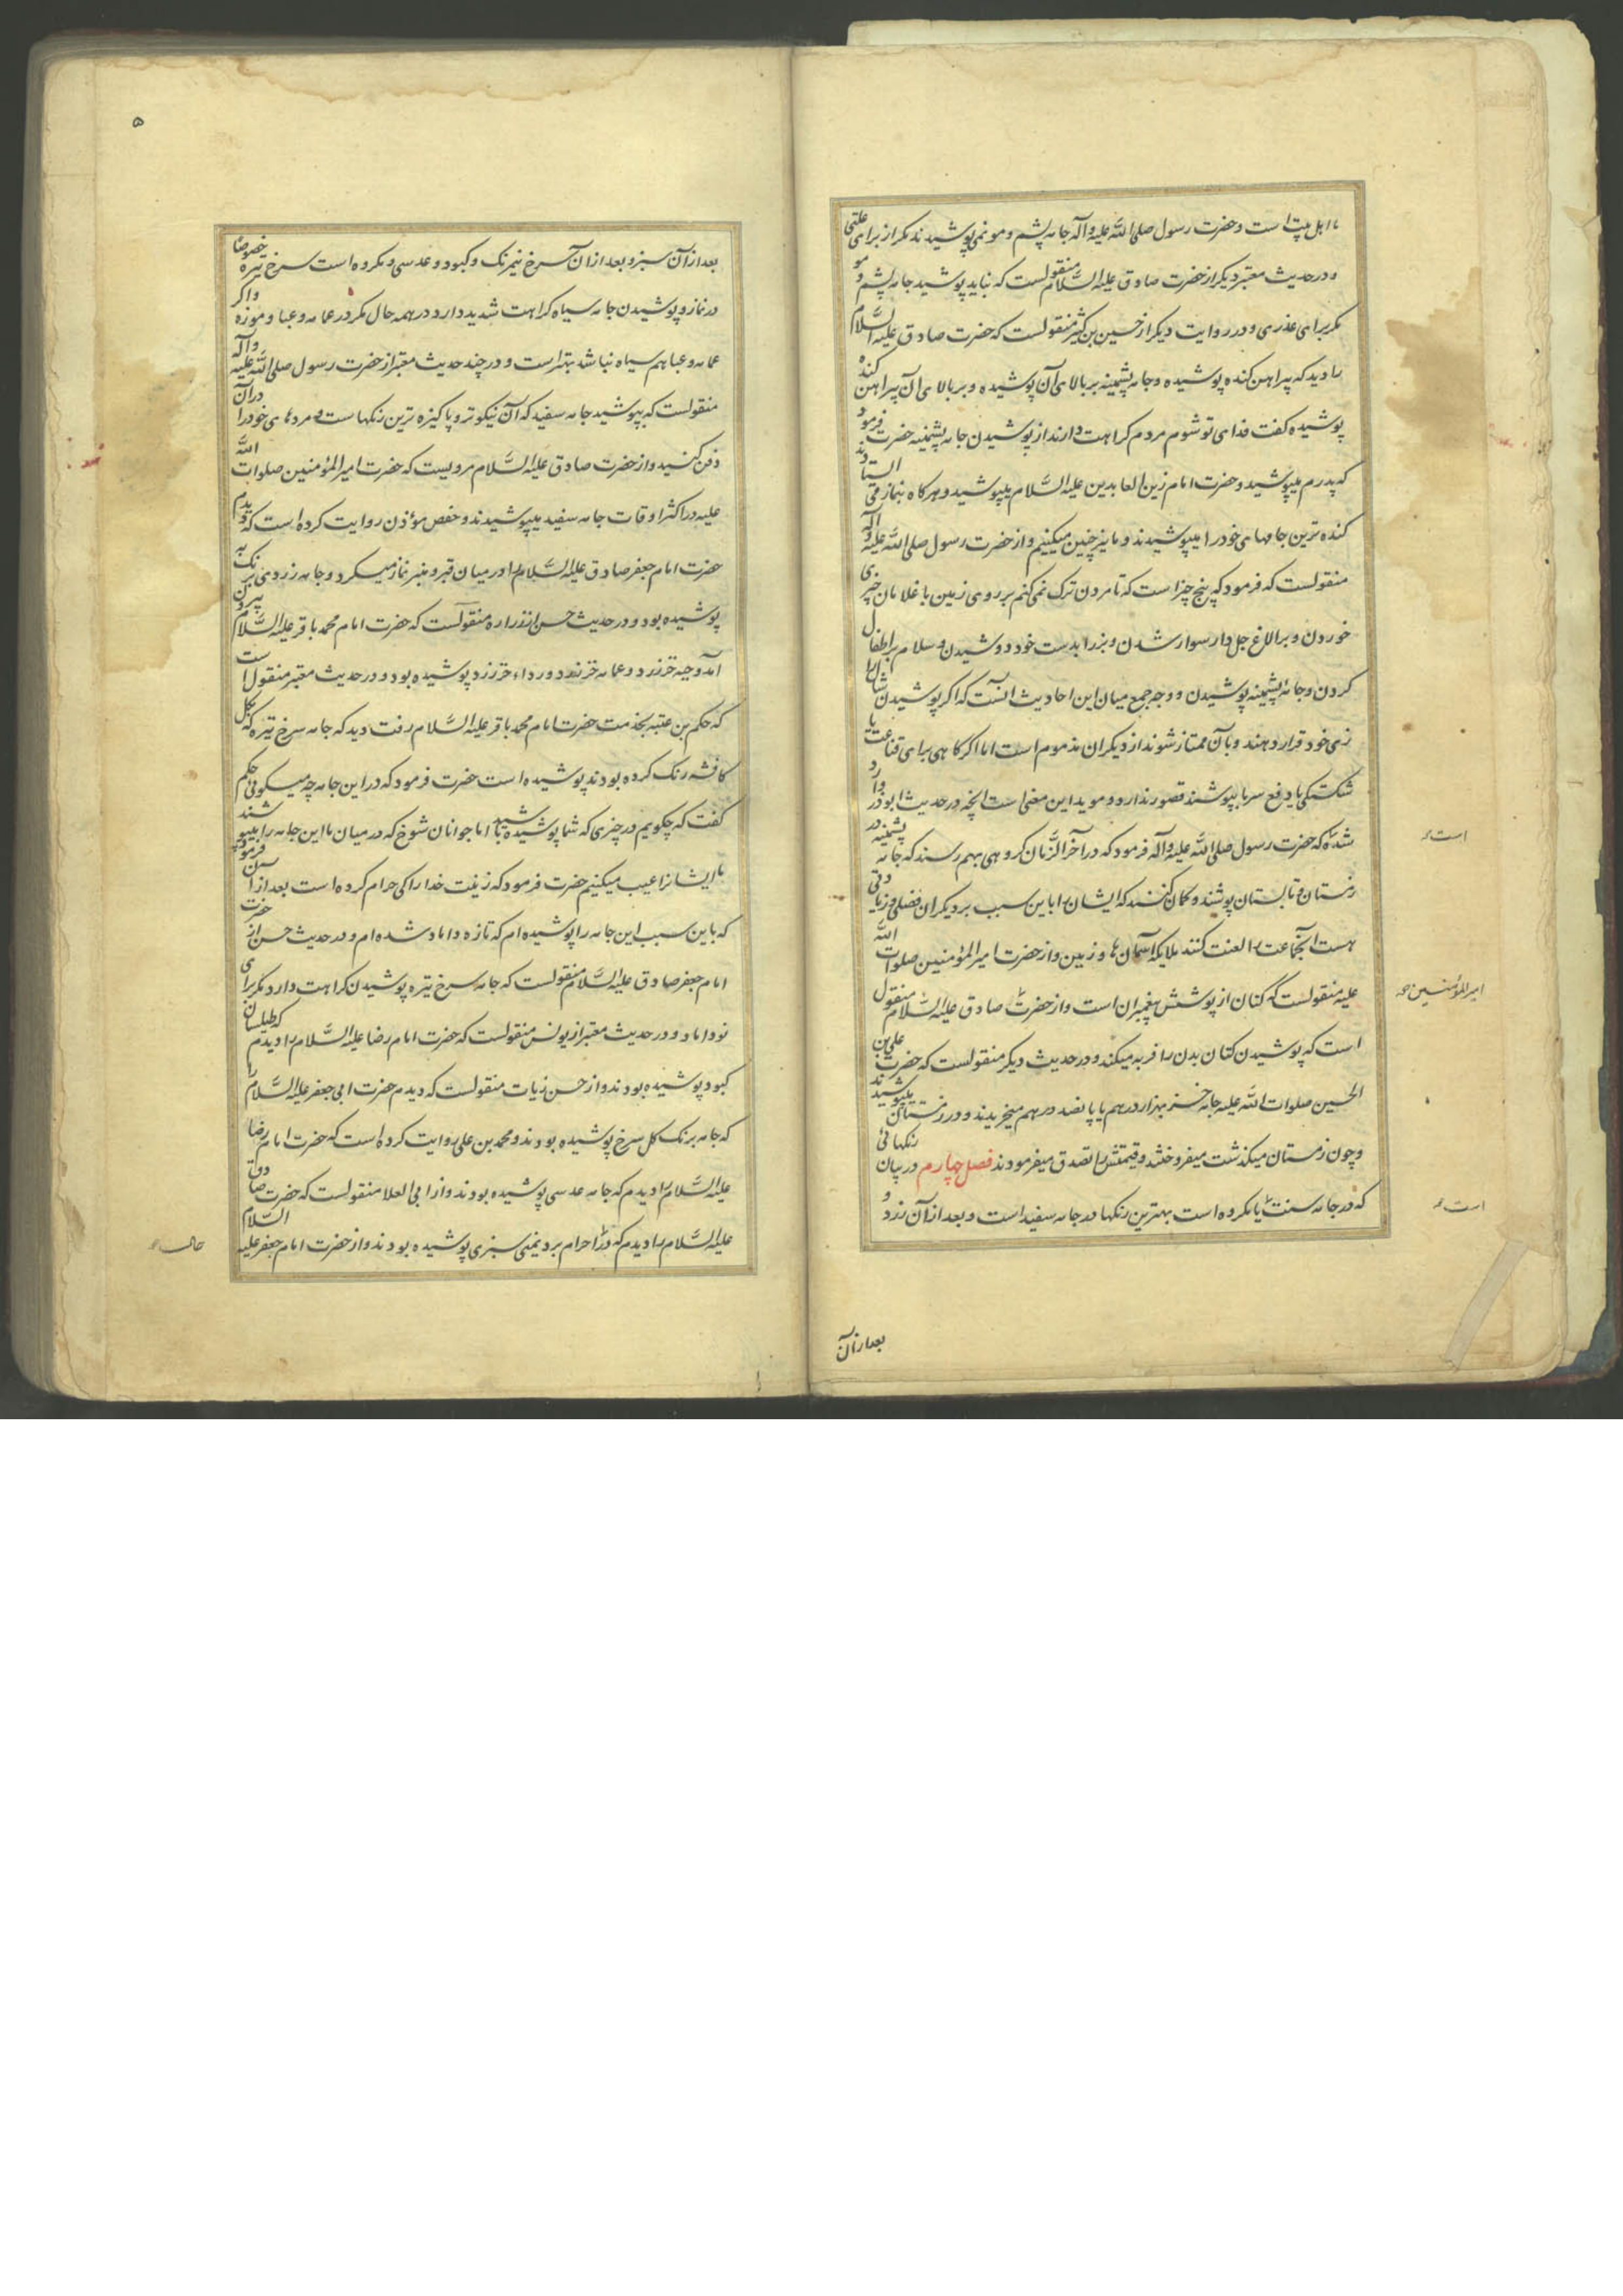 ما اهل بیت است و حضرت رسول صلی الله علیه وآله جامه پشم و مو نمی پوشیدند مکر از برای علتی
و در حدیث معتبر دیکر از حضرت صادق علیه السَّلام منقولست که نباید پوشید جامه پشم و مو
مکر برای عذری و در روایت دیکر از حسین بن کثیر منقولست که حضرت صادق علیه السَّلام
را دید که پیراهن کنده پوشیده و جامه پشمینه بر بالای آن پوشیده و بر بالای آن پیراهن کنده
پوشیده کفت فدای تو شوم مردم کراهت دارند از پوشیدن جامه پشمینه حضرت فرمود
که پدرم میپوشید و حضرت امام زین العابدین علیه السَّلام میپوشید و هرکاه بنماز می ایستادند
کنده ترین جامهای خود را میپوشیدند و ما نیز چنین میکنیم و از حضرت رسول صلی الله علیه وآله
منقولست که فرمود که پنج چیز است که تا مردن ترک نمی کنم بر روی زمین با غلامان چیزی
خوردن و بر الاغ جل دار سوار شدن و بز را بدست خود دوشیدن و سلام بر اطفال
کردن و جامه پشمینه پوشیدن و وجه جمع میان این احادیث آنست که اکر پوشیدن شال را
زی خود قرار دهند و بآن ممتاز شوند از دیکران مذموم است اما اکر کاهی برای قناعت یا
شکستکی یا دفع سرما بپوشند قصور ندارد و موید این معنی است انچه در حدیث ابوذر وارد
شده که حضرت رسول صلی الله علیه وآله فرمود که در آخر الزَّمان کروهی بهم رسند که جامه پشمینه در
زمستان و تابستان پوشند و کمان کنند که ایشان را باین سبب بر دیکران فضلی و زیادتی
هست آنجماعت را لعنت کنند ملایکه آسمان ها و زمین و از حضرت امیر المؤمنین صلوات الله
علیه منقولست که کتان از پوشش پیغمبران است و از حضرت صادق علیه السَّلام منقول
است که پوشیدن کتان بدن را فربه میکند و در حدیث دیکر منقولست که حضرت علی بن
الحسین صلوات الله علیه جامه خز بهزار درهم یا پانصد درهم میخریدند و در زمستان میپوشیدند
و چون زمستان میکذشت میفروختند و قیمتش را تصدق میفرمودند فصل چهارم در بیان رنکهائی
که در جامه سنت یا مکروه است بهترین رنکها در جامه سفید است و بعد از آن زرد و
است
امیر المؤمنین
است
بعد از آن
۵
بعد از آن سبز و بعد از آن سرخ نیم رنک و کبود و عدسی و مکروه است سرخ تیره خصوصًا
در نماز و پوشیدن جامه سیاه کراهت شدید دارد در همه حال مکر در عمامه و عبا و موزه و اکر
عمامه و عبا هم سیاه نباشد بهتر است و در چند حدیث معتبر از حضرت رسول صلی الله علیه وآله
منقولست که بپوشید جامه سفید که آن نیکوتر و پاکیزه ترین رنکهاست و مرده های خود را در آن
دفن کنید و از حضرت صادق علیه السَّلام مرویست که حضرت امیر المؤمنین صلوات الله
علیه در اکثر اوقات جامه سفید میپوشیدند و حفص مؤذن روایت کرده است که دیدم
حضرت امام جعفر صادق علیه السَّلام را در میان قبر و منبر نماز میکرد و جامه زردی برنک به
پوشیده بود و در حدیث حسن از زراره منقولست که حضرت امام محمد باقر علیه السَّلام بیرون
آمد و جبه خز زرد و عمامه خز زرد و رداء خز زرد پوشیده بود و در حدیث معتبر منقول است
که حکم بن عتبه بخدمت حضرت امام محمد باقر علیه السَّلام رفت دید که جامه سرخ تیره که بکل
کافشه رنک کرده بودند پوشیده است حضرت فرمود که در این جامه چه میکوئی حکم
کفت که چکویم در چیزی که شما پوشیده باشید اما جوانان شوخ که در میان ما این جامه را بپوشند
ما ایشانرا عیب میکنیم حضرت فرمود که زینت خدا را کی حرام کرده است بعد از آن فرمود
که باین سبب این جامه را پوشیده ام که تازه داماد شده ام و در حدیث حسن از حضرت
امام جعفر صادق علیه السَّلام منقولست که جامه سرخ تیره پوشیدن کراهت دارد مکر برای
نو داماد و در حدیث معتبر از یونس منقولست که حضرت امام رضا علیه السَّلام را دیدم که طیلسان
کبود پوشیده بودند و از حسن زیات منقولست که دیدم حضرت ابی جعفر علیه السَّلام را
که جامه برنک کل سرخ پوشیده بودند و محمد بن علی روایت کرده است که حضرت امام رضا
علیه السَّلام را دیدم که جامه عدسی پوشیده بودند و از ابی العلا منقولست که حضرت صادق
علیه السَّلام را دیدم که در احرام برد یمنی سبزی پوشیده بودند و از حضرت امام جعفر علیه السَّلام
حال